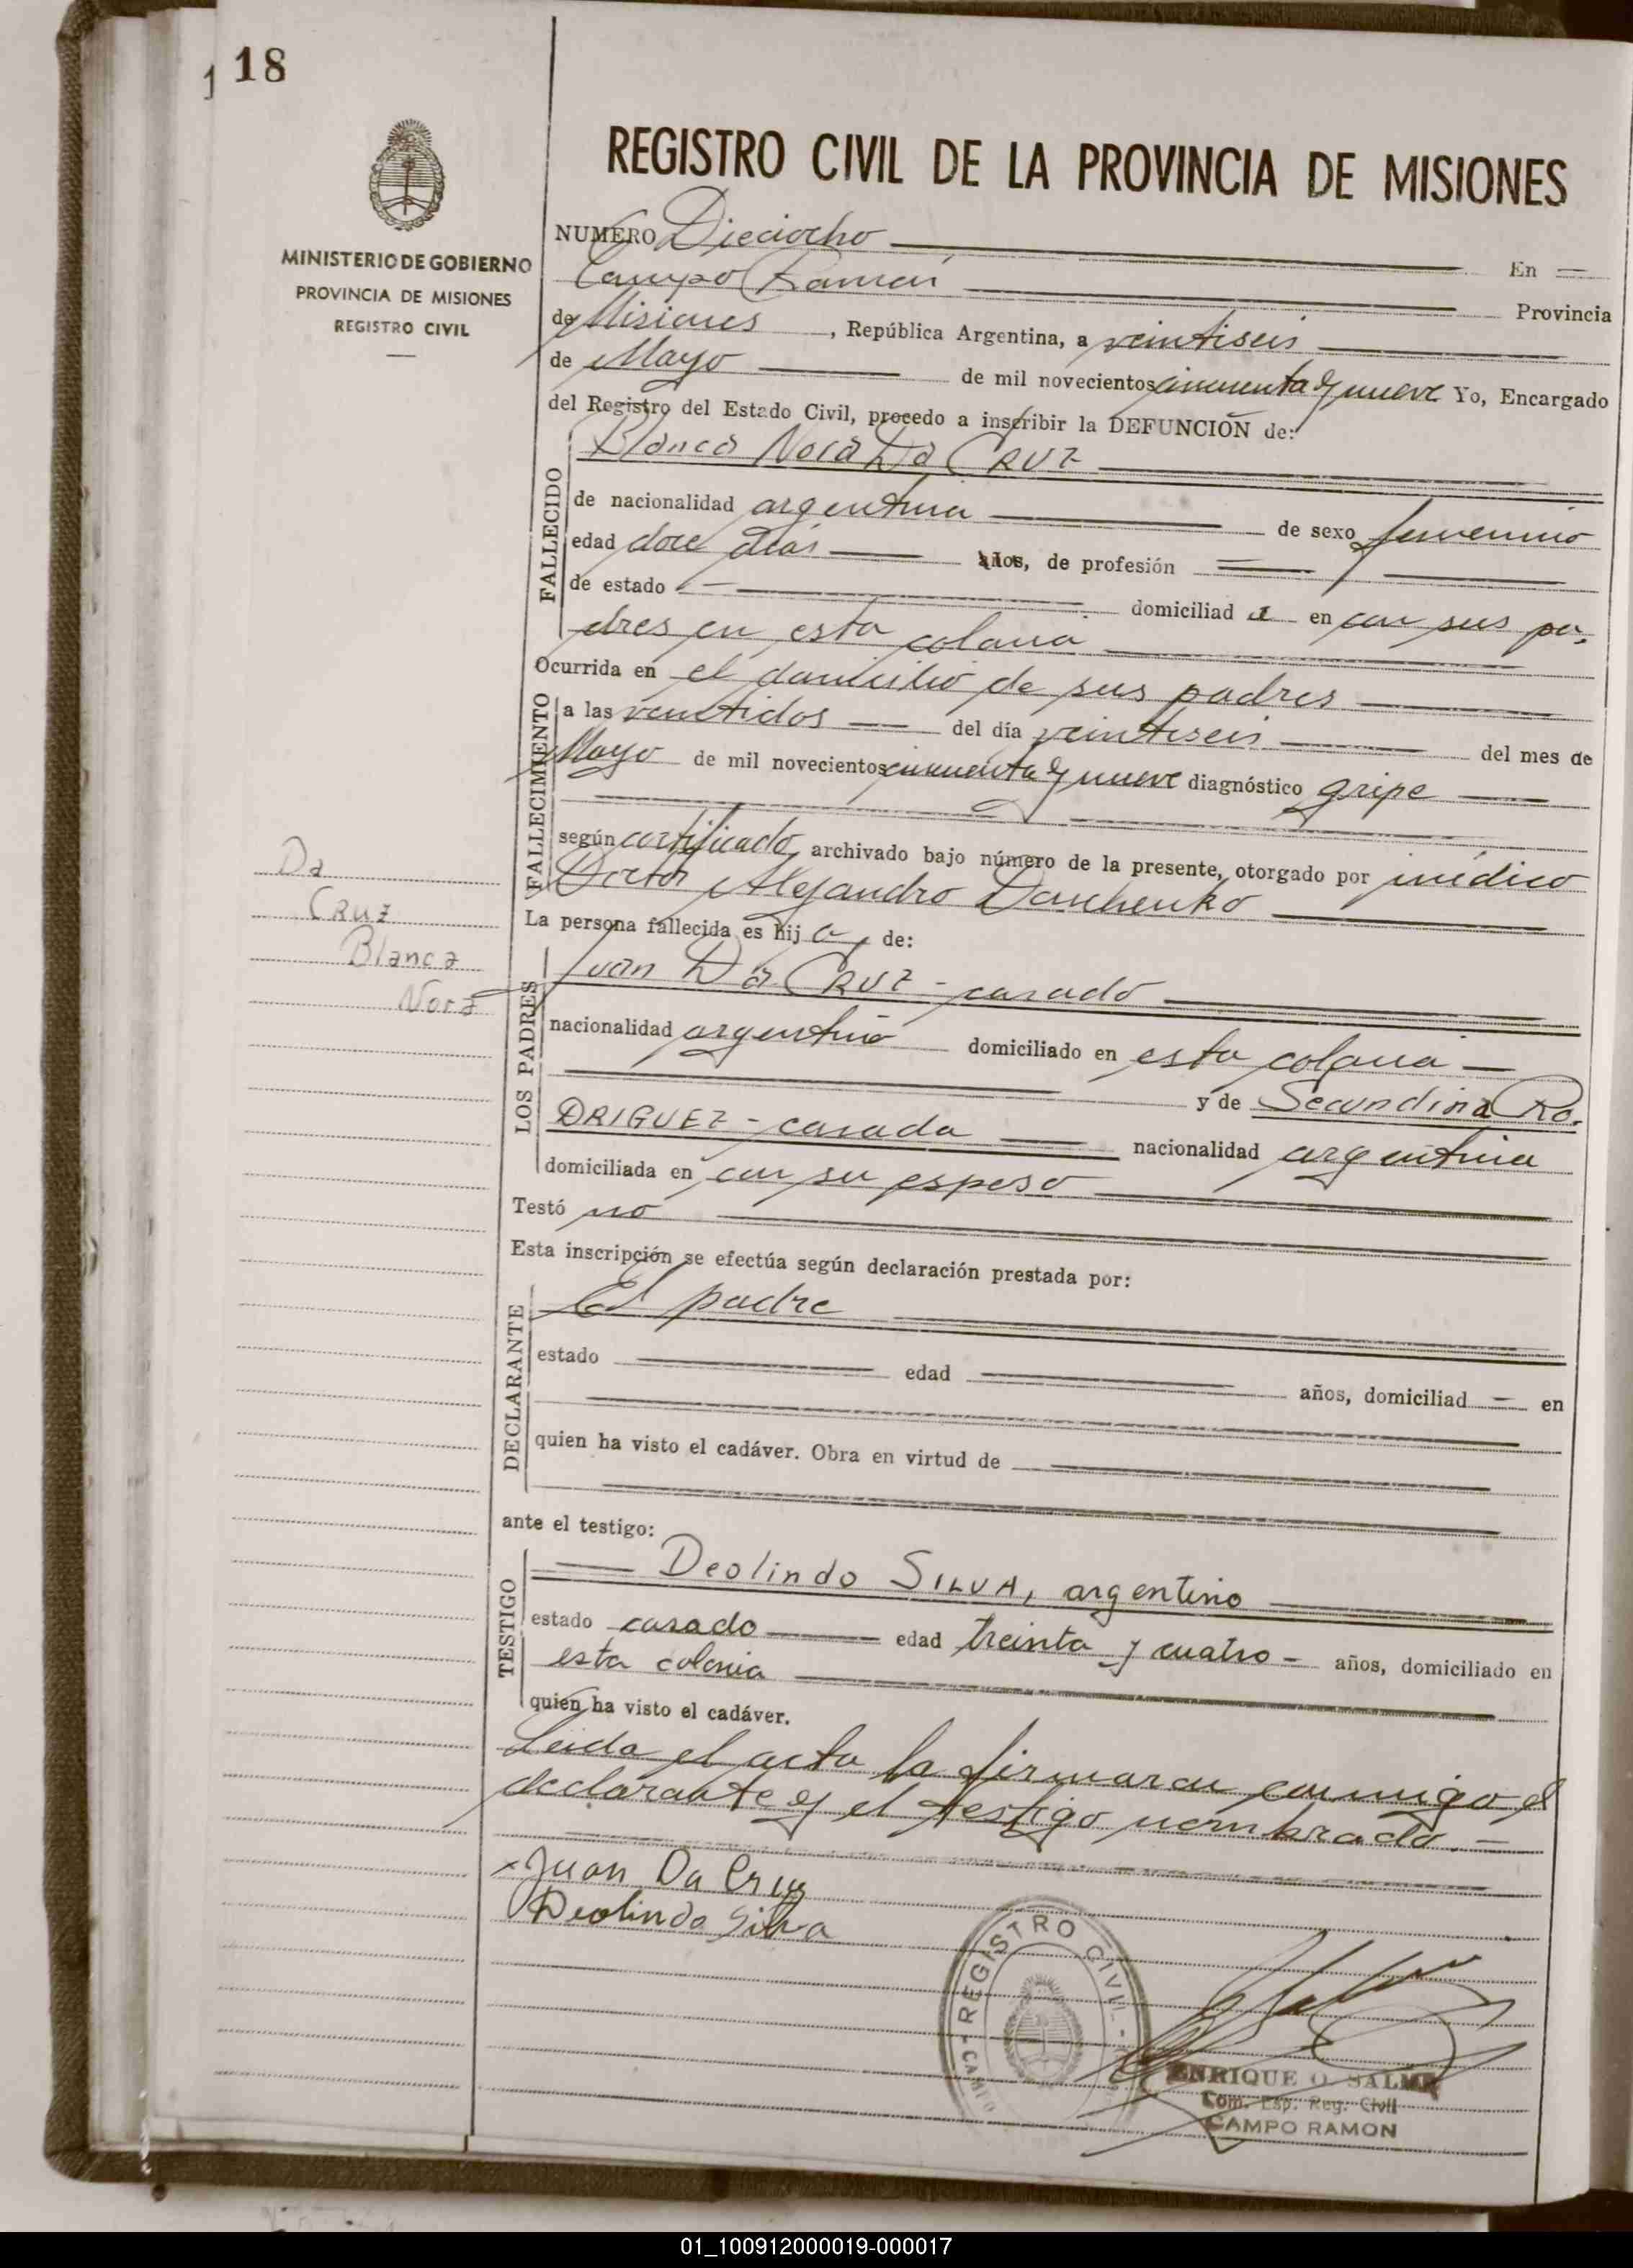 18
REGISTRO CIVIL DE LA PROVINCIA DE MISIONES
MINISTERIO DE GOBIERNO
PROVINCIA DE MISIONES
REGISTRO CIVIL
NUMERO Dieciocho En
Campo Ramón Provincia
de Misiones, República Argentina, a veintiseis
de Mayo de mil novecientos cincuenta y nueve Yo, Encargado
del Registro del Estado Civil, procedo a inscribir la DEFUNCIÓN de:
FALLECIDO
Blanca Nora Da CRUZ
de nacionalidad argentina de sexo femenino
edad doce días años, de profesión
de estado domiciliad a en con sus pa-
dres en esta colonia
Ocurrida en el domicilio de sus padres
FALLECIMIENTO
a las veintidos del día veintiseis del mes de
Mayo de mil novecientos cincuenta y nueve diagnóstico gripe
según certificado, archivado bajo número de la presente, otorgado por médico
Doctor Alejandro Danchenko
La persona fallecida es hij a, de:
Da
Cruz
Blanca
Nora
LOS PADRES
Juan Da CRUZ - casado
nacionalidad argentino domiciliado en esta colonia
y de Secundina Ro-
DRIGUEZ - casada nacionalidad argentina
domiciliada en con su esposo
Testó no
Esta inscripción se efectúa según declaración prestada por:
DECLARANTE
El padre
estado edad años, domiciliad en
quien ha visto el cadáver. Obra en virtud de
ante el testigo:
TESTIGO
Deolindo SILVA, argentino
estado casado edad treinta y cuatro - años, domiciliado en
esta colonia
quien ha visto el cadáver.
Leida el acta la firmaron conmigo el
declarante y el testigo nombrado. -
x Juan Da Cruz
Deolindo Silva
REGISTRO CIVIL - CAMPO
ENRIQUE O. SALME
Com. Esp. Reg. Civil
CAMPO RAMON
01_100912000019-000017